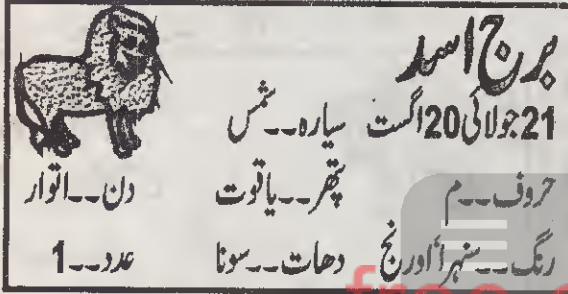 برج اسد
21 جولائی 20 اگست سیارہ۔۔شمس
حروف۔۔م پتھر۔۔یاقوت دن۔۔اتوار
رنگ۔۔سنہرا، اورنج دھات۔۔سونا عدد۔۔1